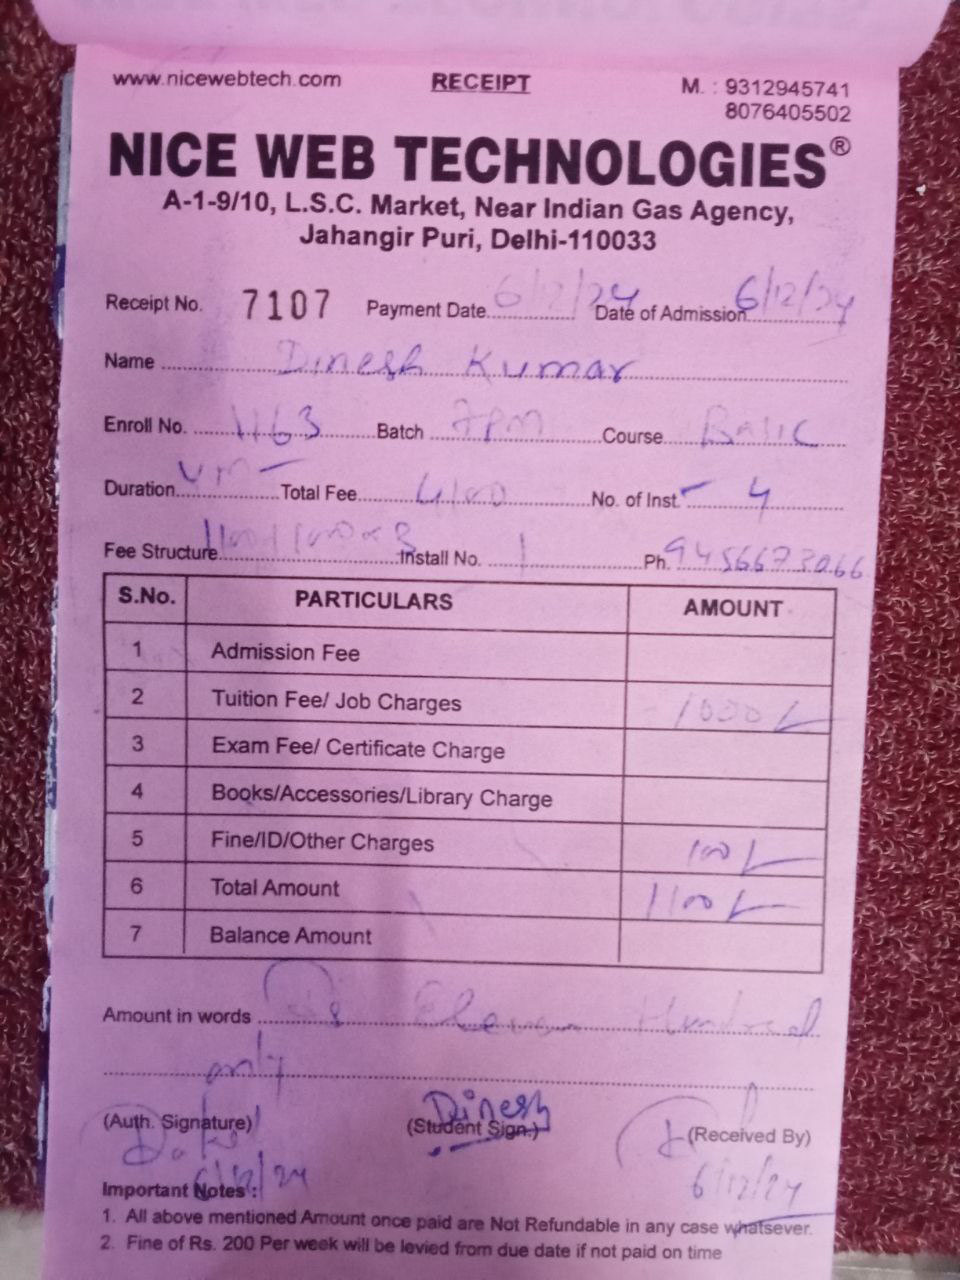 www.nicewebtech.com RECEIPT M. : 9312945741
8076405502
NICE WEB TECHNOLOGIES®
A-1-9/10, L.S.C. Market, Near Indian Gas Agency,
Jahangir Puri, Delhi-110033
Receipt No. 7107 Payment Date 6/12/24 Date of Admission 6/12/24
Name Dinesh Kumar
Enroll No. 1163 Batch 7PM Course Basic
Duration Total Fee 4100 No. of Inst. - 4
Fee Structure 1100+1000×3 Install No. 1 Ph. 9456673066
S.No. PARTICULARS AMOUNT
1 Admission Fee
2 Tuition Fee/ Job Charges 1000/-
3 Exam Fee/ Certificate Charge
4 Books/Accessories/Library Charge
5 Fine/ID/Other Charges 100/-
6 Total Amount 1100/-
7 Balance Amount
Amount in words Rs Eleven Hundred
only
Dinesh
(Auth. Signature) (Student Sign.) (Received By)
6/12/24 6/12/24
Important Notes :
1. All above mentioned Amount once paid are Not Refundable in any case whatsever.
2. Fine of Rs. 200 Per week will be levied from due date if not paid on time